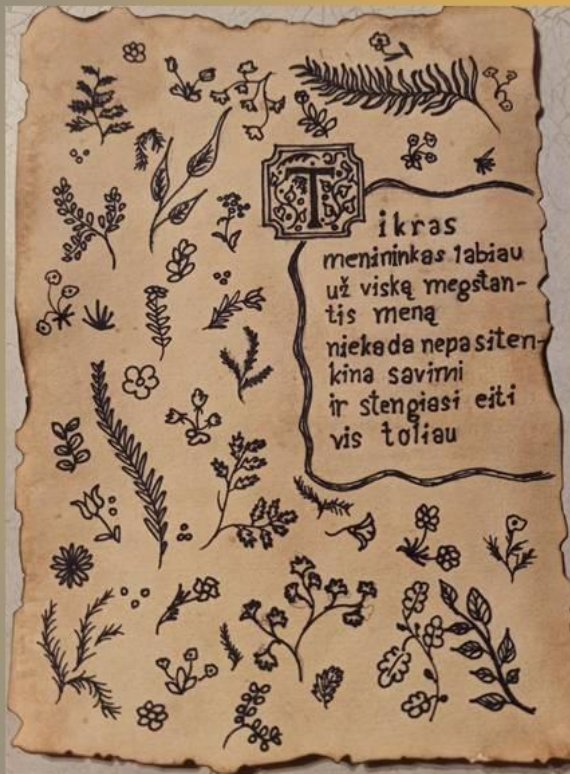 Tikras
menininkas labiau
už viską megstan-
tis meną
niekada nepasiten-
kina savimi
ir stengiasi eiti
vis toliau